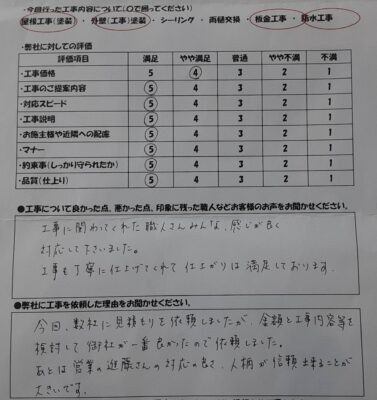 ・今回行った工事内容について(○で囲ってください)
屋根工事(塗装)・外壁(工事)塗装・シーリング・雨樋交換・板金工事・防水工事
・弊社に対しての評価
評価項目 満足 やや満足 普通 やや不満 不満
・工事価格 5 4 3 2 1
・工事のご提案内容 5 4 3 2 1
・対応スピード 5 4 3 2 1
・工事説明 5 4 3 2 1
・お施主様や近隣への配慮 5 4 3 2 1
・マナー 5 4 3 2 1
・約束事(しっかり守られたか) 5 4 3 2 1
・品質(仕上り) 5 4 3 2 1
●工事について良かった点、悪かった点、印象に残った職人などお客様のお声をお聞かせください。
工事に関わってくれた職人さんみんな、感じが良く
対応して下さいました。
工事も丁寧に仕上げてくれて仕上がりは満足しております。
●弊社に工事を依頼した理由をお聞かせください。
今回、数社に見積もりを依頼しましたが、金額と工事内容等を
検討して御社が一番良かったので依頼しました。
あとは営業の進藤さんの対応の良さ、人柄が信頼出来ることが
大きいです。